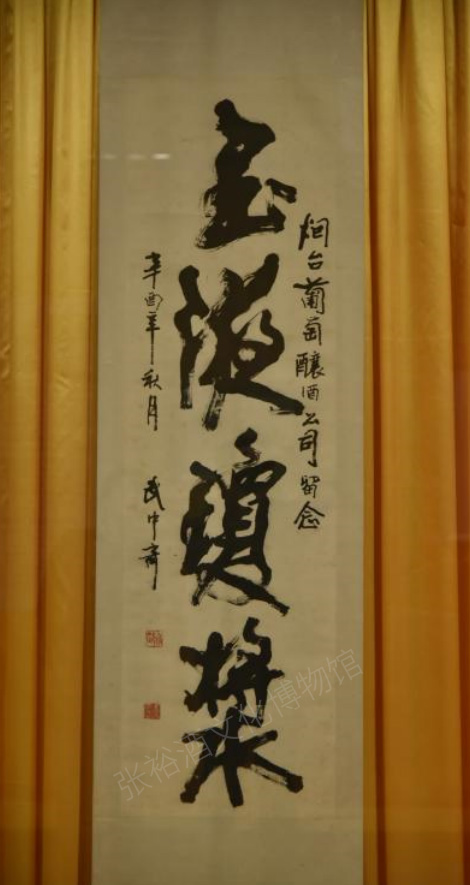 烟台葡萄酿酒公司留念
玉液瓊漿
辛酉年秋月 武中奇
张裕酒文化博物馆